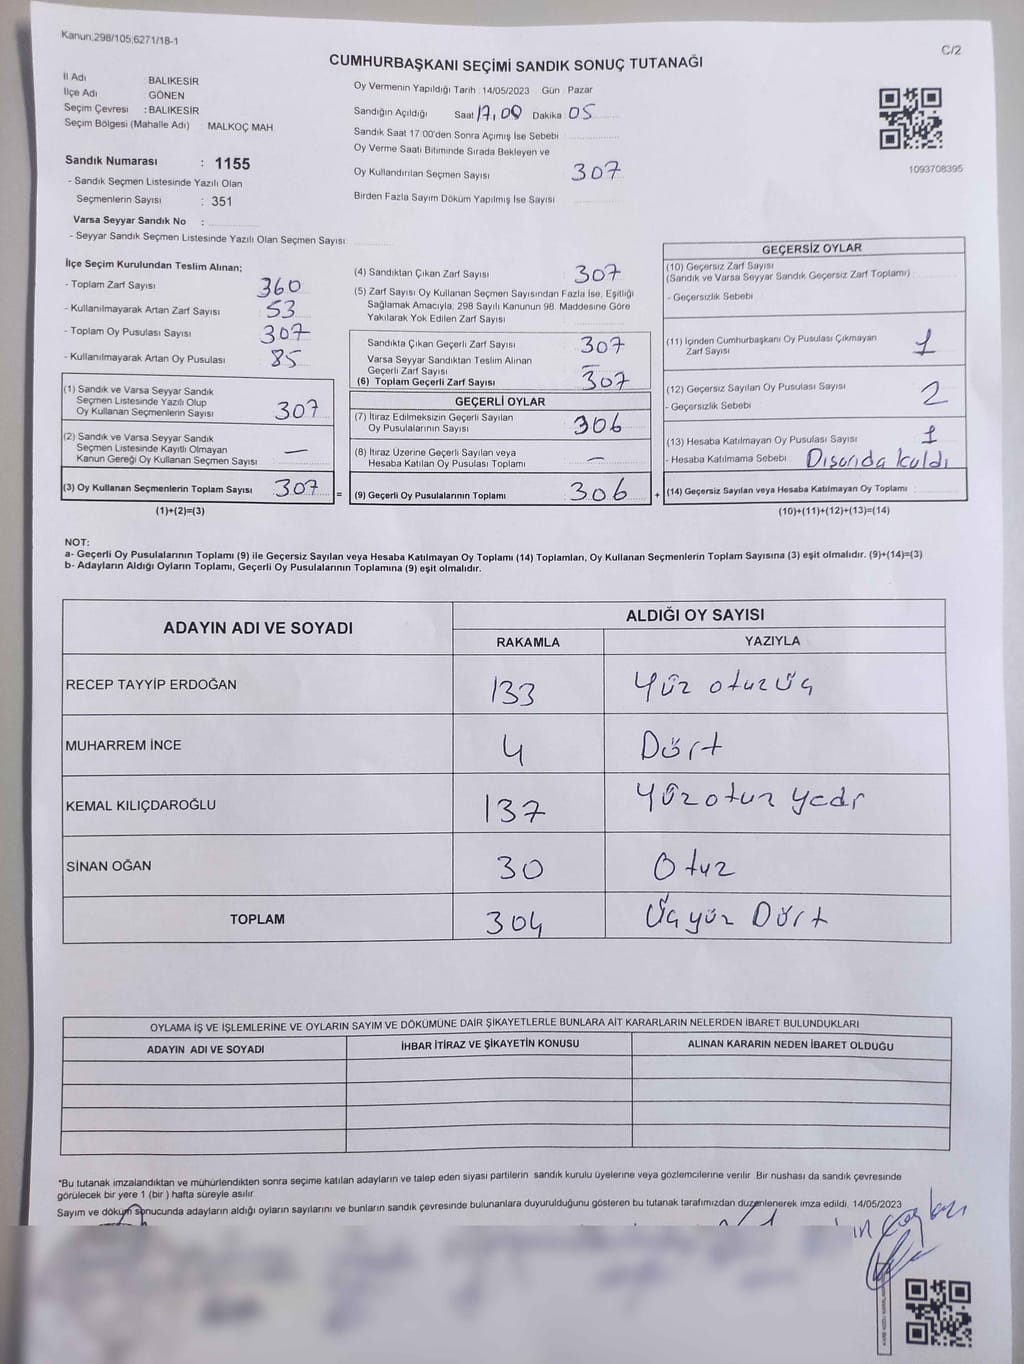 Kanun;298/105;6271/18-1
C/2
CUMHURBAŞKANI SEÇİMİ SANDIK SONUÇ TUTANAĞI
İl Adı BALIKESİR
İlçe Adı GÖNEN
Seçim Çevresi : BALIKESİR
Seçim Bölgesi (Mahalle Adı) MALKOÇ MAH.
Sandık Numarası : 1155
- Sandık Seçmen Listesinde Yazılı Olan
Seçmenlerin Sayısı : 351
Varsa Seyyar Sandık No :
- Seyyar Sandık Seçmen Listesinde Yazılı Olan Seçmen Sayısı:
Oy Vermenin Yapıldığı Tarih : 14/05/2023 Gün : Pazar
Sandığın Açıldığı Saat 17.00 Dakika 05
Sandık Saat 17:00'den Sonra Açımış İse Sebebi
Oy Verme Saati Bitiminde Sırada Bekleyen ve
Oy Kullandırılan Seçmen Sayısı 307
Birden Fazla Sayım Döküm Yapılmış İse Sayısı
1093708395
İlçe Seçim Kurulundan Teslim Alınan;
- Toplam Zarf Sayısı 360
- Kullanılmayarak Artan Zarf Sayısı 53
- Toplam Oy Pusulası Sayısı 307
- Kullanılmayarak Artan Oy Pusulası 85
(1) Sandık ve Varsa Seyyar Sandık
Seçmen Listesinde Yazılı Olup
Oy Kullanan Seçmenlerin Sayısı 307
(2) Sandık ve Varsa Seyyar Sandık
Seçmen Listesinde Kayıtlı Olmayan
Kanun Gereği Oy Kullanan Seçmen Sayısı —
(3) Oy Kullanan Seçmenlerin Toplam Sayısı 307 =
(1)+(2)=(3)
(4) Sandıktan Çıkan Zarf Sayısı 307
(5) Zarf Sayısı Oy Kullanan Seçmen Sayısından Fazla İse, Eşitliği
Sağlamak Amacıyla, 298 Sayılı Kanunun 98. Maddesine Göre
Yakılarak Yok Edilen Zarf Sayısı
Sandıkta Çıkan Geçerli Zarf Sayısı 307
Varsa Seyyar Sandıktan Teslim Alınan
Geçerli Zarf Sayısı —
(6) Toplam Geçerli Zarf Sayısı 307
GEÇERLİ OYLAR
(7) İtiraz Edilmeksizin Geçerli Sayılan
Oy Pusulalarının Sayısı 306
(8) İtiraz Üzerine Geçerli Sayılan veya
Hesaba Katılan Oy Pusulası Toplamı —
(9) Geçerli Oy Pusulalarının Toplamı 306 +
GEÇERSİZ OYLAR
(10) Geçersiz Zarf Sayısı
(Sandık ve Varsa Seyyar Sandık Geçersiz Zarf Toplamı)
- Geçersizlik Sebebi
(11) İçinden Cumhurbaşkanı Oy Pusulası Çıkmayan
Zarf Sayısı 1
(12) Geçersiz Sayılan Oy Pusulası Sayısı 2
- Geçersizlik Sebebi
(13) Hesaba Katılmayan Oy Pusulası Sayısı 1
- Hesaba Katılmama Sebebi Dışarıda kaldı
(14) Geçersiz Sayılan veya Hesaba Katılmayan Oy Toplamı
(10)+(11)+(12)+(13)=(14)
NOT:
a- Geçerli Oy Pusulalarının Toplamı (9) ile Geçersiz Sayılan veya Hesaba Katılmayan Oy Toplamı (14) Toplamları, Oy Kullanan Seçmenlerin Toplam Sayısına (3) eşit olmalıdır. (9)+(14)=(3)
b- Adayların Aldığı Oyların Toplamı, Geçerli Oy Pusulalarının Toplamına (9) eşit olmalıdır.
ADAYIN ADI VE SOYADI
ALDIĞI OY SAYISI
RAKAMLA YAZIYLA
RECEP TAYYİP ERDOĞAN 133 Yüz otuz Üç
MUHARREM İNCE 4 Dört
KEMAL KILIÇDAROĞLU 137 Yüz otuz yedi
SİNAN OĞAN 30 Otuz
TOPLAM 304 Üçyüz Dört
OYLAMA İŞ VE İŞLEMLERİNE VE OYLARIN SAYIM VE DÖKÜMÜNE DAİR ŞİKAYETLERLE BUNLARA AİT KARARLARIN NELERDEN İBARET BULUNDUKLARI
ADAYIN ADI VE SOYADI İHBAR İTİRAZ VE ŞİKAYETİN KONUSU ALINAN KARARIN NEDEN İBARET OLDUĞU
*Bu tutanak imzalandıktan ve mühürlendikten sonra seçime katılan adayların ve talep eden siyasi partilerin sandık kurulu üyelerine veya gözlemcilerine verilir. Bir nushası da sandık çevresinde
görülecek bir yere 1 (bir ) hafta süreyle asılır.
Sayım ve döküm sonucunda adayların aldığı oyların sayılarını ve bunların sandık çevresinde bulunanlara duyurulduğunu gösteren bu tutanak tarafımızdan düzenlenerek imza edildi. 14/05/2023